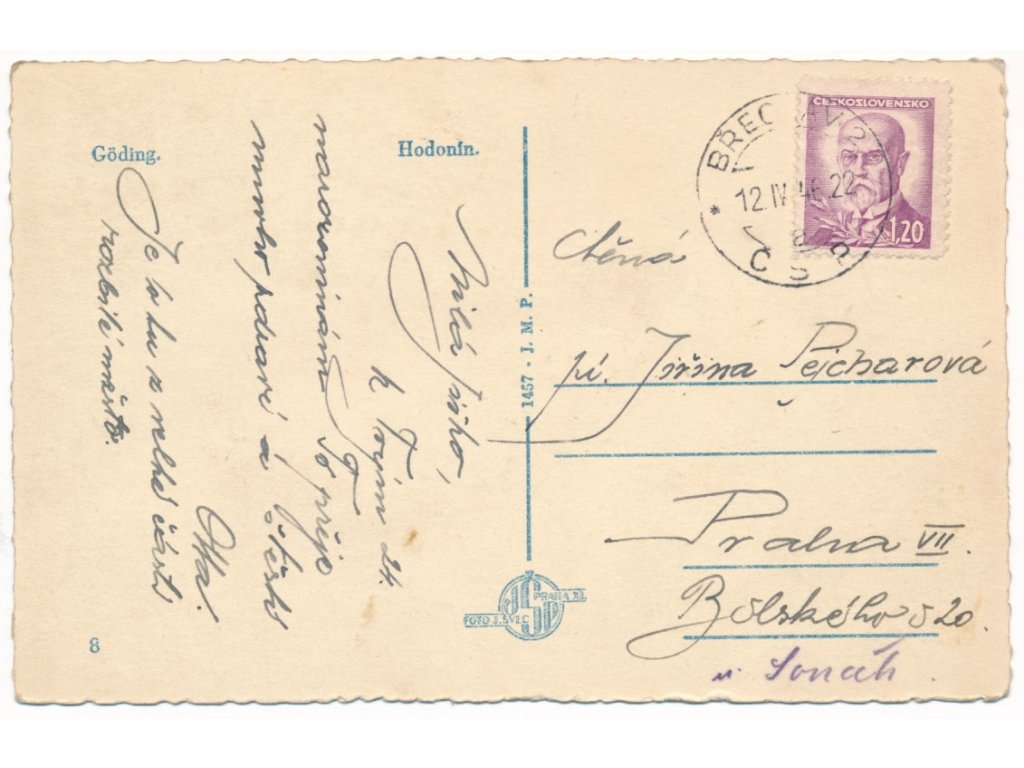 Göding.
Hodonín.
Milá Jiřko,
k Tvým 24.
narozeninám Ti přeje
mnoho zdaru a štěstí
Ota.
Je to tu z velké části
rozbité město.
8
1457 - J. M. P.
FOTO J. ŠVEC
PRAHA XI.
ČESKOSLOVENSKO
1,20
BŘECLAV 2
12.IV.46.22
ČSR
ctěná
pí. Jiřina Pejcharová
Praha VII.
Bělského 20.
u Sonách.